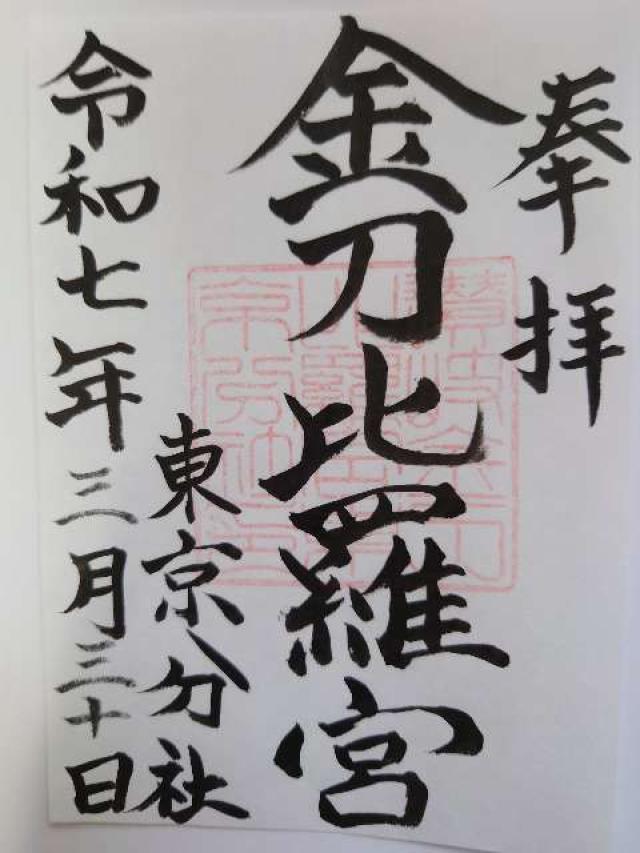 奉拝
金刀比羅宮
東京分社
令和七年三月三十日